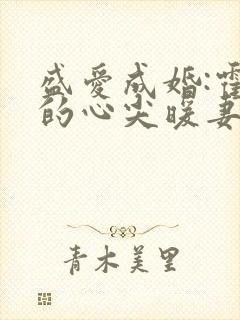 盛爱成婚:霍
的心尖暖妻
青木美里